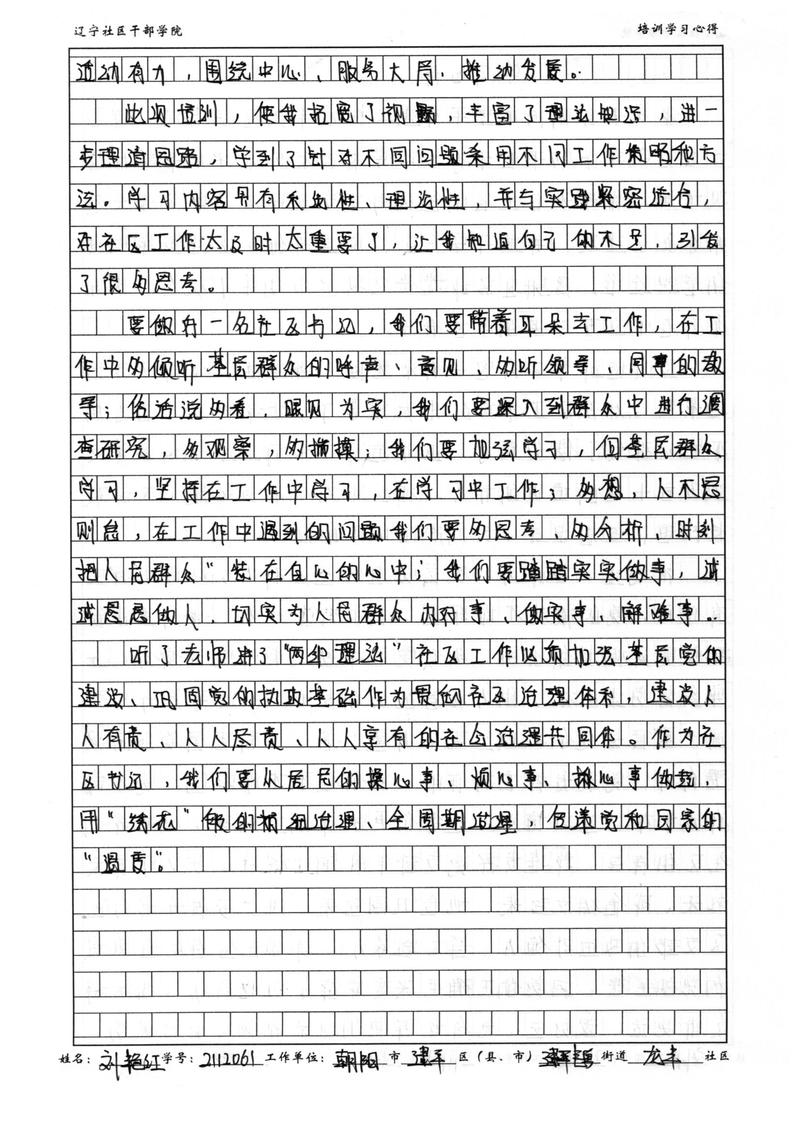 辽宁社区干部学院 培训学习心得
运动有力，围绕中心、服务大局，推动发展。
此次培训，使我拓宽了视野，丰富了理论知识，进一
步理清思路，学到了针对不同问题采用不同工作策略和方
法。学习内容具有系统性、理论性，并与实践紧密结合，
对社区工作太及时太重要了，让我知道自己的不足，引发
了很多思考。
要做好一名社区书记，我们要带着耳朵去工作，在工
作中多倾听基层群众的呼声、意见、多听领导、同事的教
导；俗话说多看，眼见为实，我们要深入到群众中进行调
查研究，多观察，多揣摸；我们要加强学习，向基层群众
学习，坚持在工作中学习，在学习中工作；多想，人不思
则怠，在工作中遇到的问题我们要多思考、多分析、时刻
把人民群众"装在自心的心中；我们要踏踏实实做事，诚
诚恳恳做人，切实为人民群众办好事、做实事、解难事。
听了老师讲了"两邻理论"社区工作必须加强基层党的
建设、巩固党的执政基础作为贯的社区治理体系，建设人
人有责、人人尽责、人人享有的社会治理共同体。作为社
区书记，我们要从居民的操心事、烦心事、揪心事做起，
用"绣花"般的精细治理、全周期治理，传递党和国家的
"温度"。
姓名：刘艳红 学号：2112061 工作单位：朝阳 市 建平 区（县、市） 街道 社区